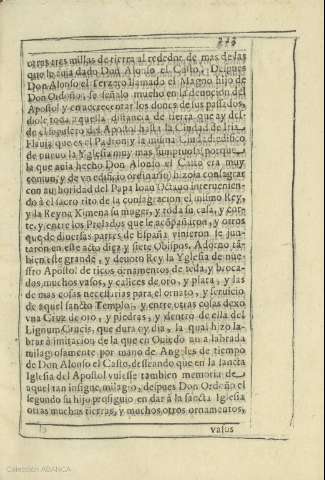 373
otras tres millas de tierra al rededor, de mas de las
que le auia dado Don Alonso el Casto, Despues
Don Alonso el Tercero llamado el Magno hijo de
Don Ordoño, se señalo mucho en la deuocion del
Apostol y en acrecentar los dones de sus passados,
diole toda aquella distancia de tierra que ay des-
de el sepulcro del Apostol hasta la Ciudad de Iria
Flauia que es el Padron, y la misma Ciudad, edifico
de nueuo la Yglesia muy mas sumptuosa, porque
la que auia hecho Don Alonso el Casto era muy
comun, y de vn edificio ordinario, hizola consagrar
con authoridad del Papa Ioan Octauo interuenien-
do á el sacro rito de la consagracion el mismo Rey,
y la Reyna Ximena su muger, y toda su casa, y cor-
te, y entre los Prelados que le acõpañaron, y otros
que de diuersas partes de España vinieron se jun-
taron en este acto diez y siete Obispos. Adorno tã-
bien este grande, y deuoto Rey la Yglesia de nue-
stro Apostol de ricos ornamentos de seda, y broca-
dos, muchos vasos, y calices de oro, y plata, y las
de mas cosas necessarias para el ornato, y seruicio
de aquel sancto Templo, y entre otras cosas dexo
vna Cruz de oro, y piedras, y dentro de ella del
Lignum Crucis, que dura oy dia, la qual hizo la-
brar á imitacion de la que en Ouiedo un a labrada
milagrosamente por mano de Angeles de tiempo
de Don Alonso el Casto, desseando que en la sancta
Iglesia del Apostol vuiesse tambien memoria de
aquel tan insigne milagro, despues Don Ordoño el
segundo su hijo prosiguio en dar á la sancta Iglesia
otras muchas tierras, y muchos otros ornamentos,
vasos
Colección ABANCA